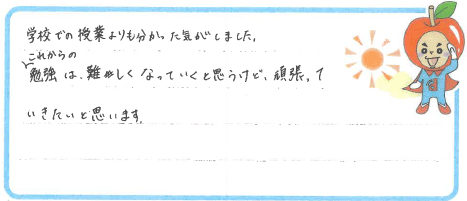 学校での授業よりも分かった気がしました。
これからの
勉強は、難しくなっていくと思うけど、頑張って
いきたいと思います。